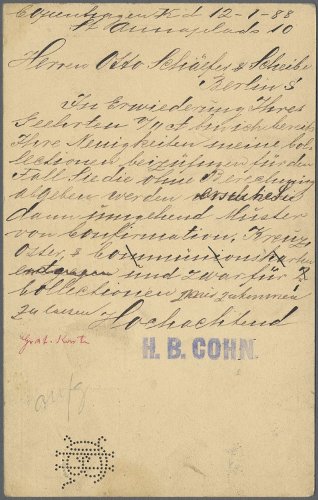 Copenhagen K d 12-1-88
St Annaplads 10
Herren Otto Schäfer & Scheibe
Berlin S
In Erwiederung Ihres
Geehrten bin ich bereit
Ihre Neuigkeiten meine Col-
lectionen beizufügen für den
Fall Sie die ohne Berechnung
abgeben werden
dann umgehend Muster
von Confirmation,
Oster, &
und zwar für 2
Collectionen zukommen
zu lassen.
Hochachtend
H. B. COHN.
Grat. Karte